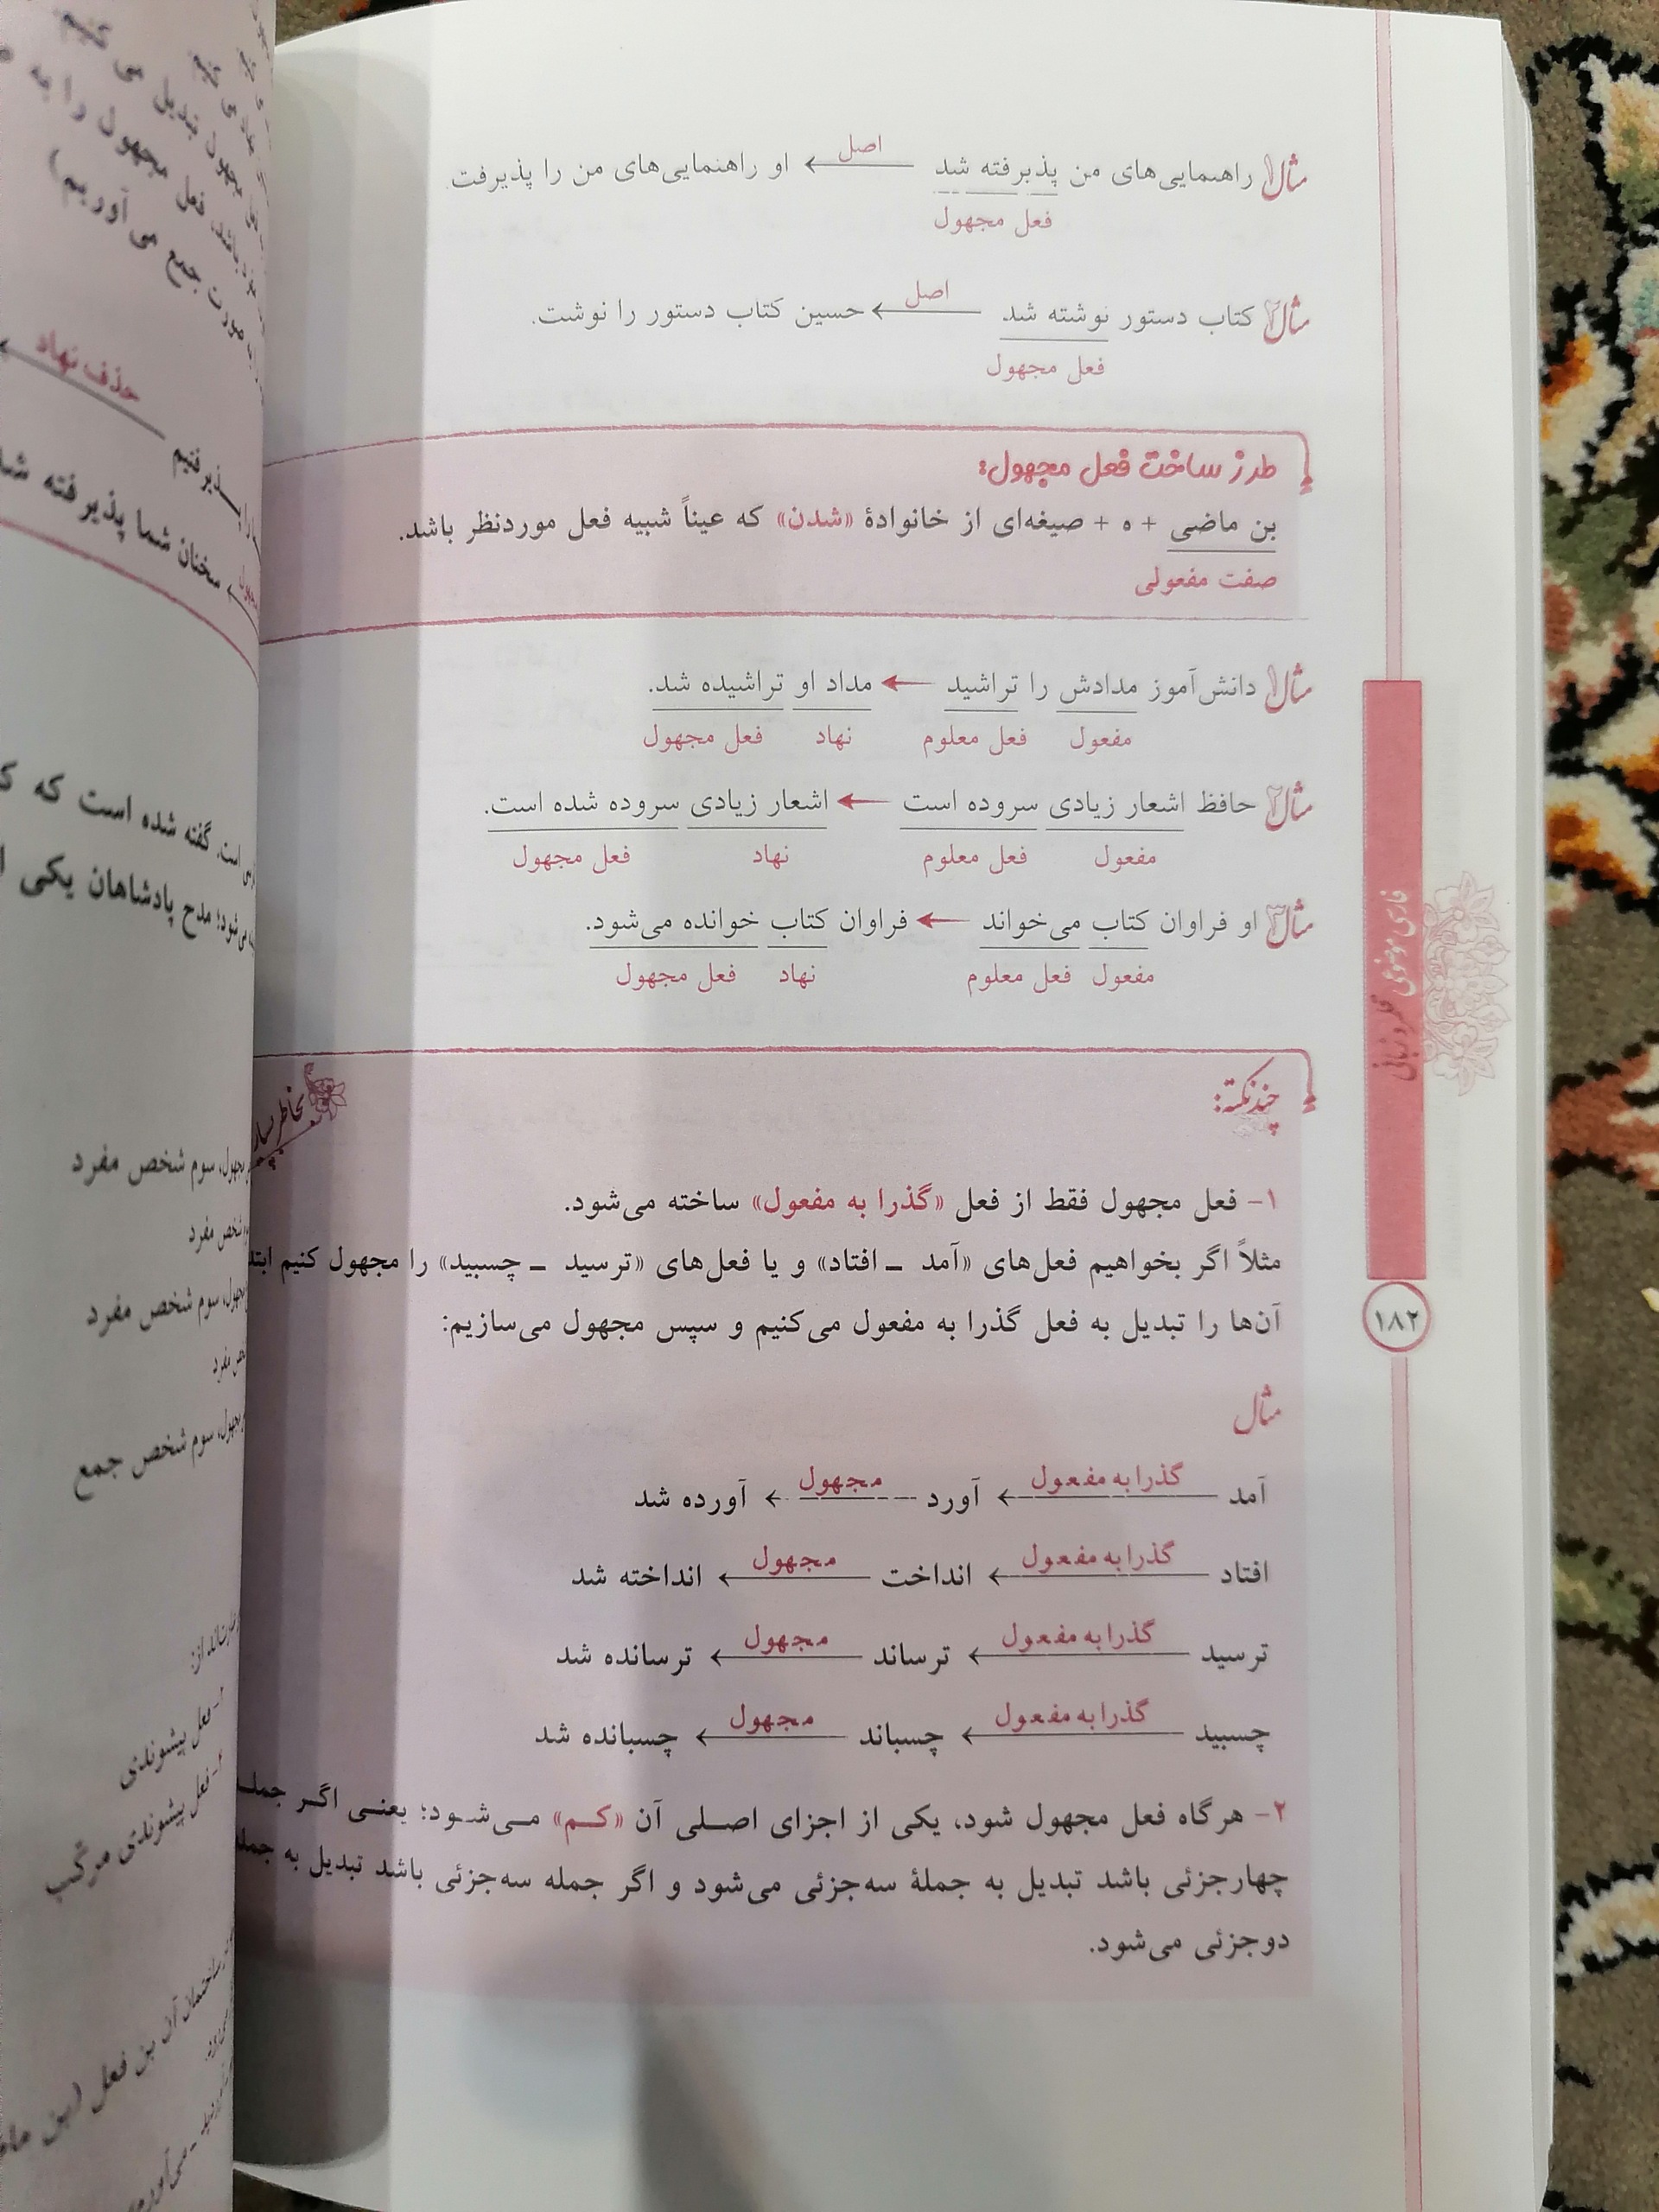 مثال۱ راهنمایی‌های من پذیرفته شد ← او راهنمایی‌های من را پذیرفت
اصل
فعل مجهول
مثال۲ کتاب دستور نوشته شد ← حسین کتاب دستور را نوشت.
اصل
فعل مجهول
طرز ساخت فعل مجهول:
بن ماضی + ه + صیغه‌ای از خانوادهٔ «شدن» که عیناً شبیه فعل موردنظر باشد.
صفت مفعولی
مثال۱ دانش‌آموز مدادش را تراشید ← مداد او تراشیده شد.
مفعول فعل معلوم نهاد فعل مجهول
مثال۲ حافظ اشعار زیادی سروده است ← اشعار زیادی سروده شده است.
مفعول فعل معلوم نهاد فعل مجهول
مثال۳ او فراوان کتاب می‌خواند ← فراوان کتاب خوانده می‌شود.
مفعول فعل معلوم نهاد فعل مجهول
چند نکته:
۱- فعل مجهول فقط از فعل «گذرا به مفعول» ساخته می‌شود.
مثلاً اگر بخواهیم فعل‌های «آمد ـ افتاد» و یا فعل‌های «ترسید ـ چسبید» را مجهول کنیم
آن‌ها را تبدیل به فعل گذرا به مفعول می‌کنیم و سپس مجهول می‌سازیم:
مثال
آمد ← گذرا به مفعول آورد ← مجهول آورده شد
افتاد ← گذرا به مفعول انداخت ← مجهول انداخته شد
ترسید ← گذرا به مفعول ترساند ← مجهول ترسانده شد
چسبید ← گذرا به مفعول چسباند ← مجهول چسبانده شد
۲- هرگاه فعل مجهول شود، یکی از اجزای اصلی آن «کم» می‌شود؛ یعنی اگر
چهارجزئی باشد تبدیل به جملهٔ سه‌جزئی می‌شود و اگر جمله سه‌جزئی باشد تبدیل به
دوجزئی می‌شود.
فارسی موضوعی قلمرو زبانی
۱۸۲
حذف نهاد
سخنان شما پذیرفته
است. گفته شده است که
مدح پادشاهان یکی
مجهول، سوم شخص مفرد
شخص مفرد
مجهول، سوم شخص مفرد
مجهول، سوم شخص جمع
۱- فعل پیشوندی
۲- فعل پیشوندی مرکّب
ساختمان آن بن فعل